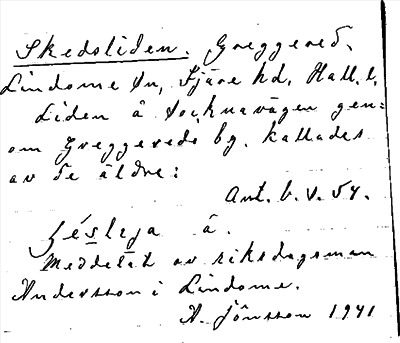 Skedsliden. Greggered.
Lindome sn, Fjäre hd, Hall. l.
Liden å socknavägen gen=
om Greggereds bg. kallades
av de äldre:
Ant. b. V. 54.
a å.
Meddelat av riksdagsman
Andersson i Lindome.
A. Jönsson 1941